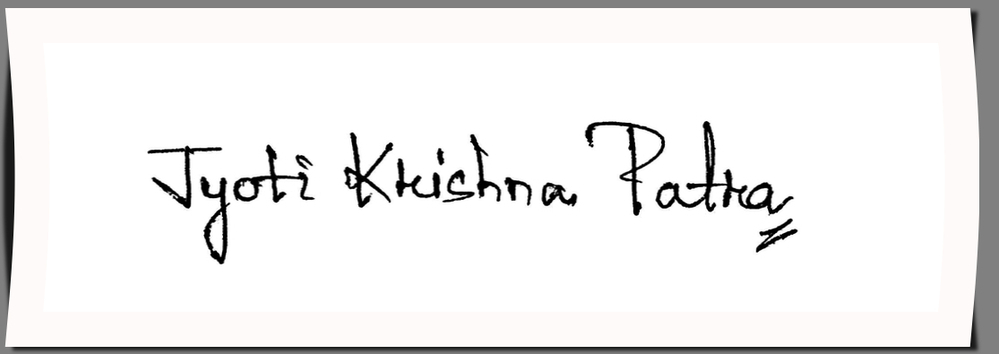 Jyoti Krishna Patra